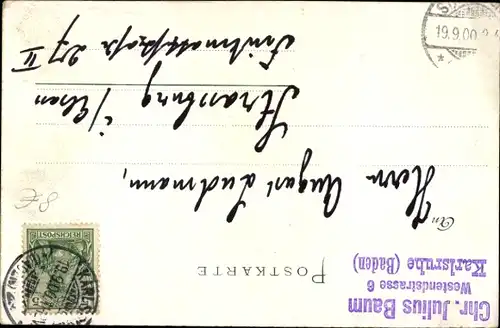 Chr. Julius Baum
Westendstrasse 6
Karlsruhe (Baden)
POSTKARTE
REICHSPOST
An
Herrn August Ludmann,
Strassburg i/Elsass
27 II
19.9.00
8€